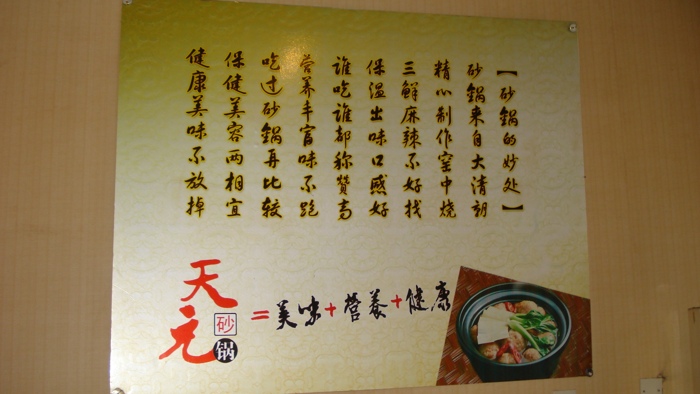 【砂锅的妙处】
砂锅来自大清朝
精心制作窑中烧
三鲜麻辣不好找
保温出味口感好
谁吃谁都称赞高
营养丰富味不跑
吃过砂锅再比较
保健美容两相宜
健康美味不放掉
天元
砂
锅
=美味+營養+健康